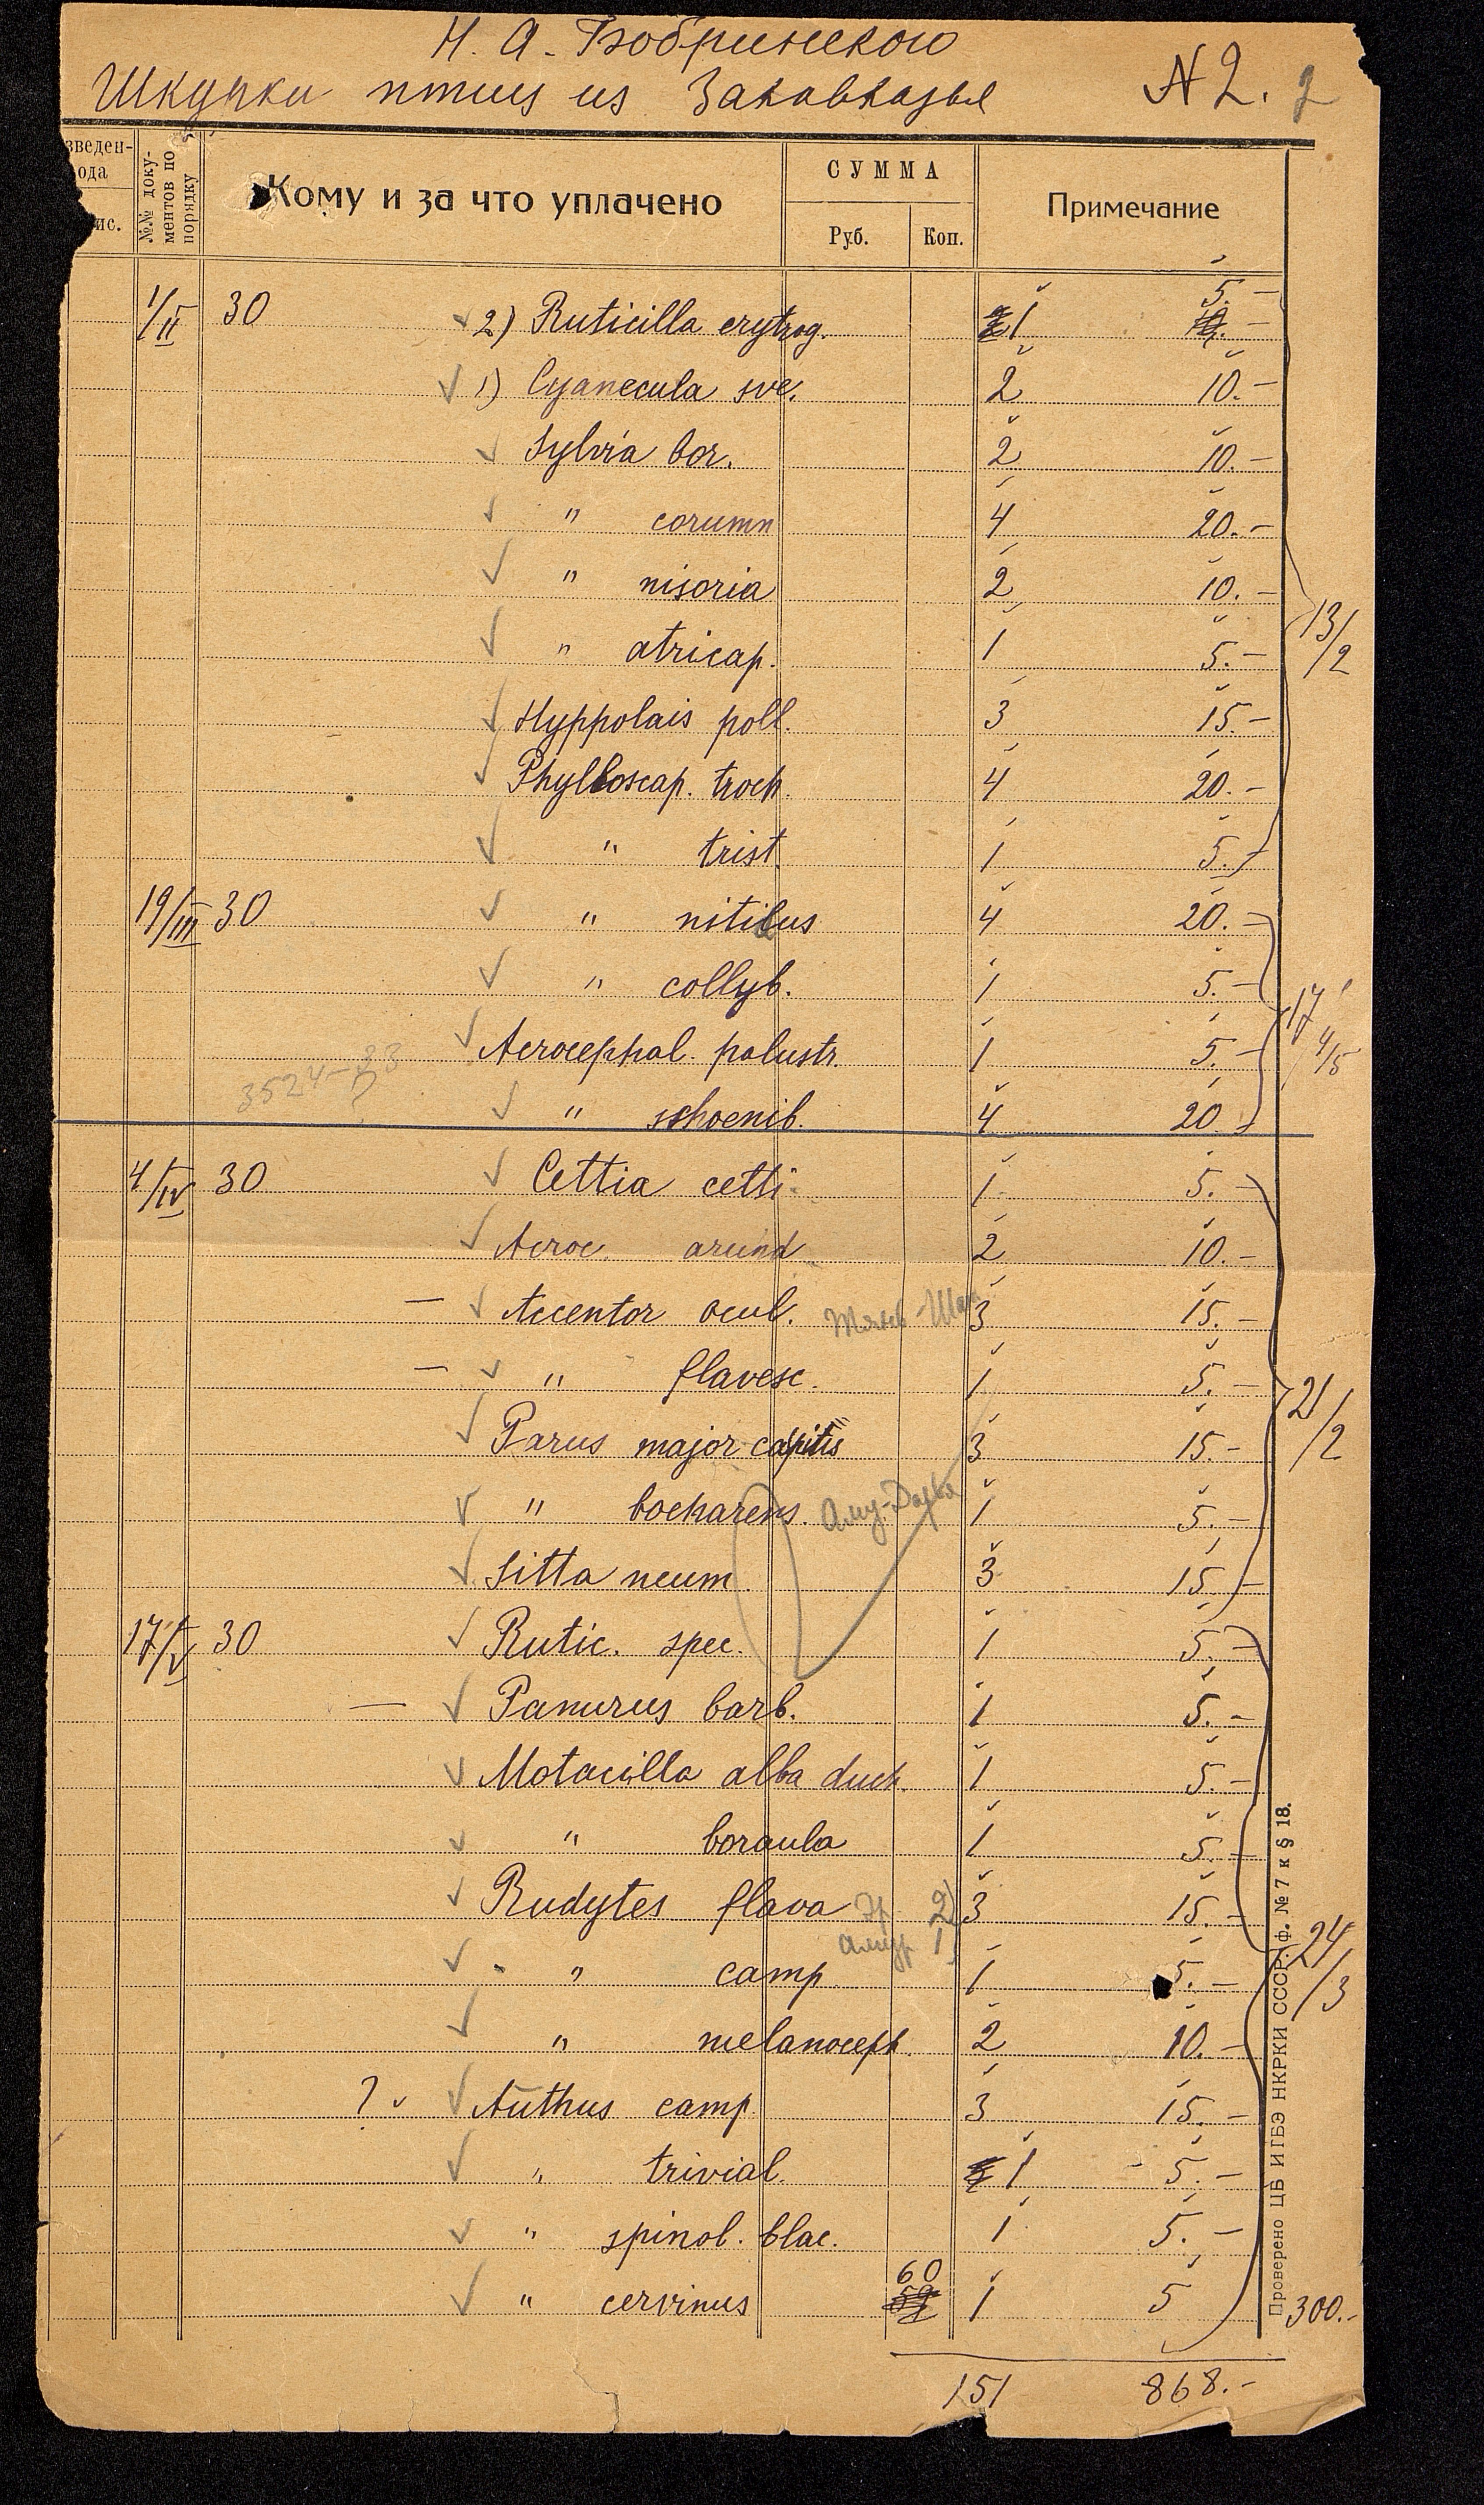 Н. А. Бобринского
Шкурки птиц из Закавказья № 2. 2
зведен-
ода
ис.
№№ доку-
ментов по
порядку
Кому и за что уплачено
СУММА
Руб.
Коп.
Примечание
1/II 30 2) Ruticilla erytrog. 1 5.–
1) Cyanecula sve. 2 10.–
Sylvia bor. 2 10.–
" corumn 4 20.–
" nisoria 2 10.–
" atricap. 1 5.–
13/2
Hyppolais poll. 3 15–
Phylloscap. troch. 4 20.–
" trist. 1 5.–
19/III 30 " nitidus 4 20.–
" collyb. 1 5.–
17 4/5
Acrocephal. palustr. 1 5.–
3524–33
?
" schoenib. 4 20
4/IV 30 Cettia cetti 1 5.–
Acroc. arund 2 10.–
– Accentor ocul. Тянь-Шан 3 15.–
– " flavesc. 1 5.–
21/2
Parus major caspius 3 15.–
" bocharens. Аму-Дарья 1 5.–
Sitta neum. 3 15.–
17/V 30 Rutic. spec. 1 5.–
– Panurus barb. 1 5.–
Motacilla alba duch. 1 5.–
" boraula 1 5.–
Budytes flava 2) 3 15.–
Амур 1)
24/3
" camp 1 5.–
" melanoceph. 2 10.–
? Anthus camp 3 15.–
" trivial. 1 5.–
" spinol. blac. 1 5.–
" cervinus 60 1 5
300.–
151 868.–
Проверено ЦБ ИГБЭ НКРКИ СССР. ф. № 7 к § 18.